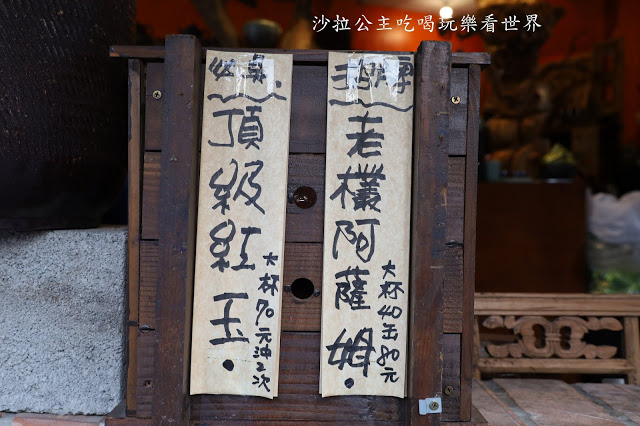 沙拉公主吃喝玩樂看世界
老欉阿薩姆
大杯40缶80元
頂級紅玉
大杯70元沖2次